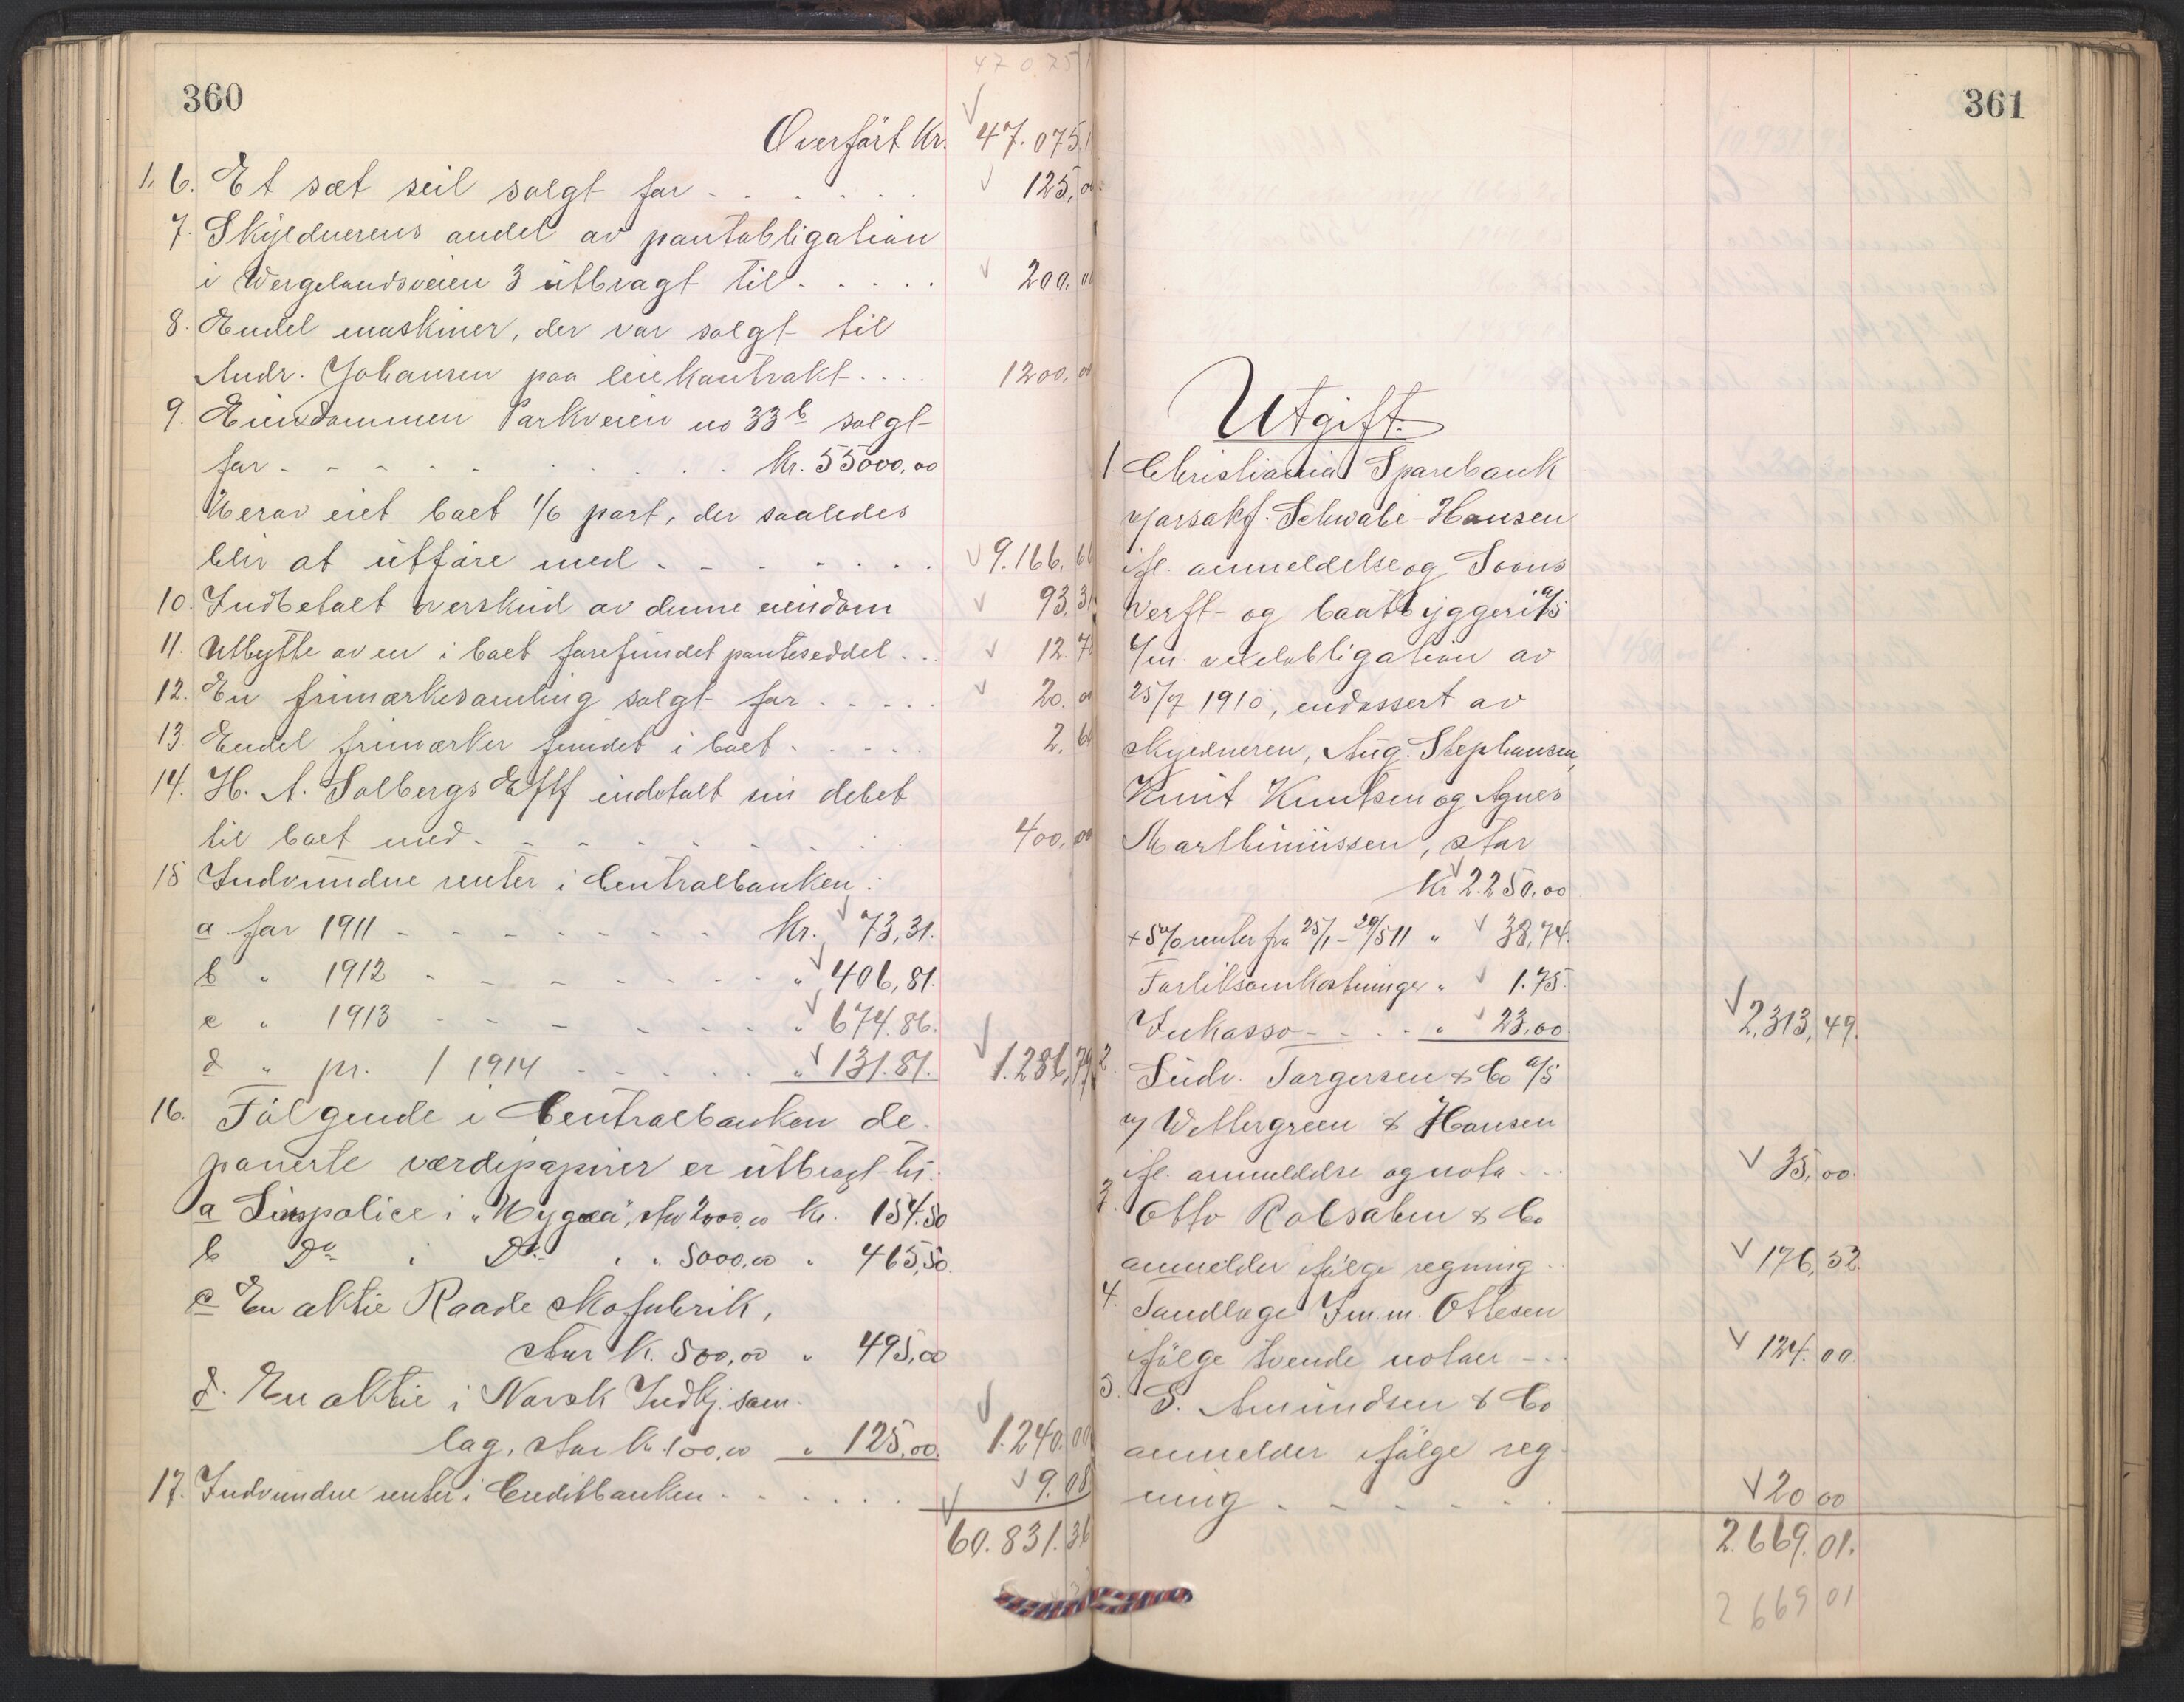 360
47 0 75
Overført Kr. 47.075.1
1, 6. Et sæt seil solgt for - - - - - 125,00
7. Skyldnerens andel av pantobligation
i Wergelandsveien 3 utbragt til - - - - - 200,00
8. Endel maskiner, der var solgt til
Andr. Johansen paa leiekontrakt - - - - 1200,00
9. Eiendommen Parkveien no 33b solgt
for - - - - - - - - - Kr. 55000,00
Herav eiet boet 1/6 part, der saaledes
blir at utføre med - - - - - - - 9.166,66
10. Indbetalt overskud av denne eiendom 93,31
11. Utbytte av en i boet forefundet panteseddel - - - 12.7
12. En frimærkesamling solgt for - - - - - 20.00
13. Endel frimærker fundet i boet - - - - - 2,60
14. H. A. Solbergs Eftf indbetalt sin debet
til boet med - - - - - - - - 400,00
15 Indvundne renter i Centralbanken:
a for 1911 - - - - - - - - Kr. 73,31.
b " 1912 - - - - - - - - " 406,81.
c " 1913 - - - - - - - - " 674.86.
d " pr. / 1914 - - - - - - " 131.81. 1.286,79
16. Følgende i Centralbanken de-
ponerte værdipapirer er utbragt til:
a Livspolice i "Hygæa", stor 2000,00 Kr. 154.50
b Do i Do " " 5000,00 " 465,50.
c En aktie Raade skofabrik,
stor K. 500,00 " 495,00
d. En aktie i Norsk Indkj. sam-
lag, stor kr. 100,00 " 125,00. 1.240,00
17. Indvundne renter i Creditbanken - - - - - - 9.08
60.831.36
361
Utgift.
1 Christiania Sparebank
v/orsakf. Schwabe-Hansen
ifl. anmeldelse og Soons
Verft- og baatbyggeri a/s
4/m. vexelobligation av
25/7 1910, endossert av
skyldneren, Aug. Stephansen,
Knut Knutsen og Agnes
Marthiniussen, stor
Kr 2.250.00
+ 5% renter fra 25/1 - 29/5 11 " 38,74.
Forliksomkostninger " 1.75.
Inkasso - - - - " 23,00 2,313,49.
2 Ludv. Torgersen & Co a/s
v/ Wettergreen & Hansen
ifl. anmeldelse og nota - - - 35,00.
3. Otto Robsahm & Co
anmelder ifølge regning - - 176,52.
4. Tandlæge Imm. Ottesen
ifølge tvende notaer - - - 124.00.
5. S. Amundsen & Co
anmelder ifølge reg-
ning - - - - - - - 20 00
2.669.01.
2 669 01